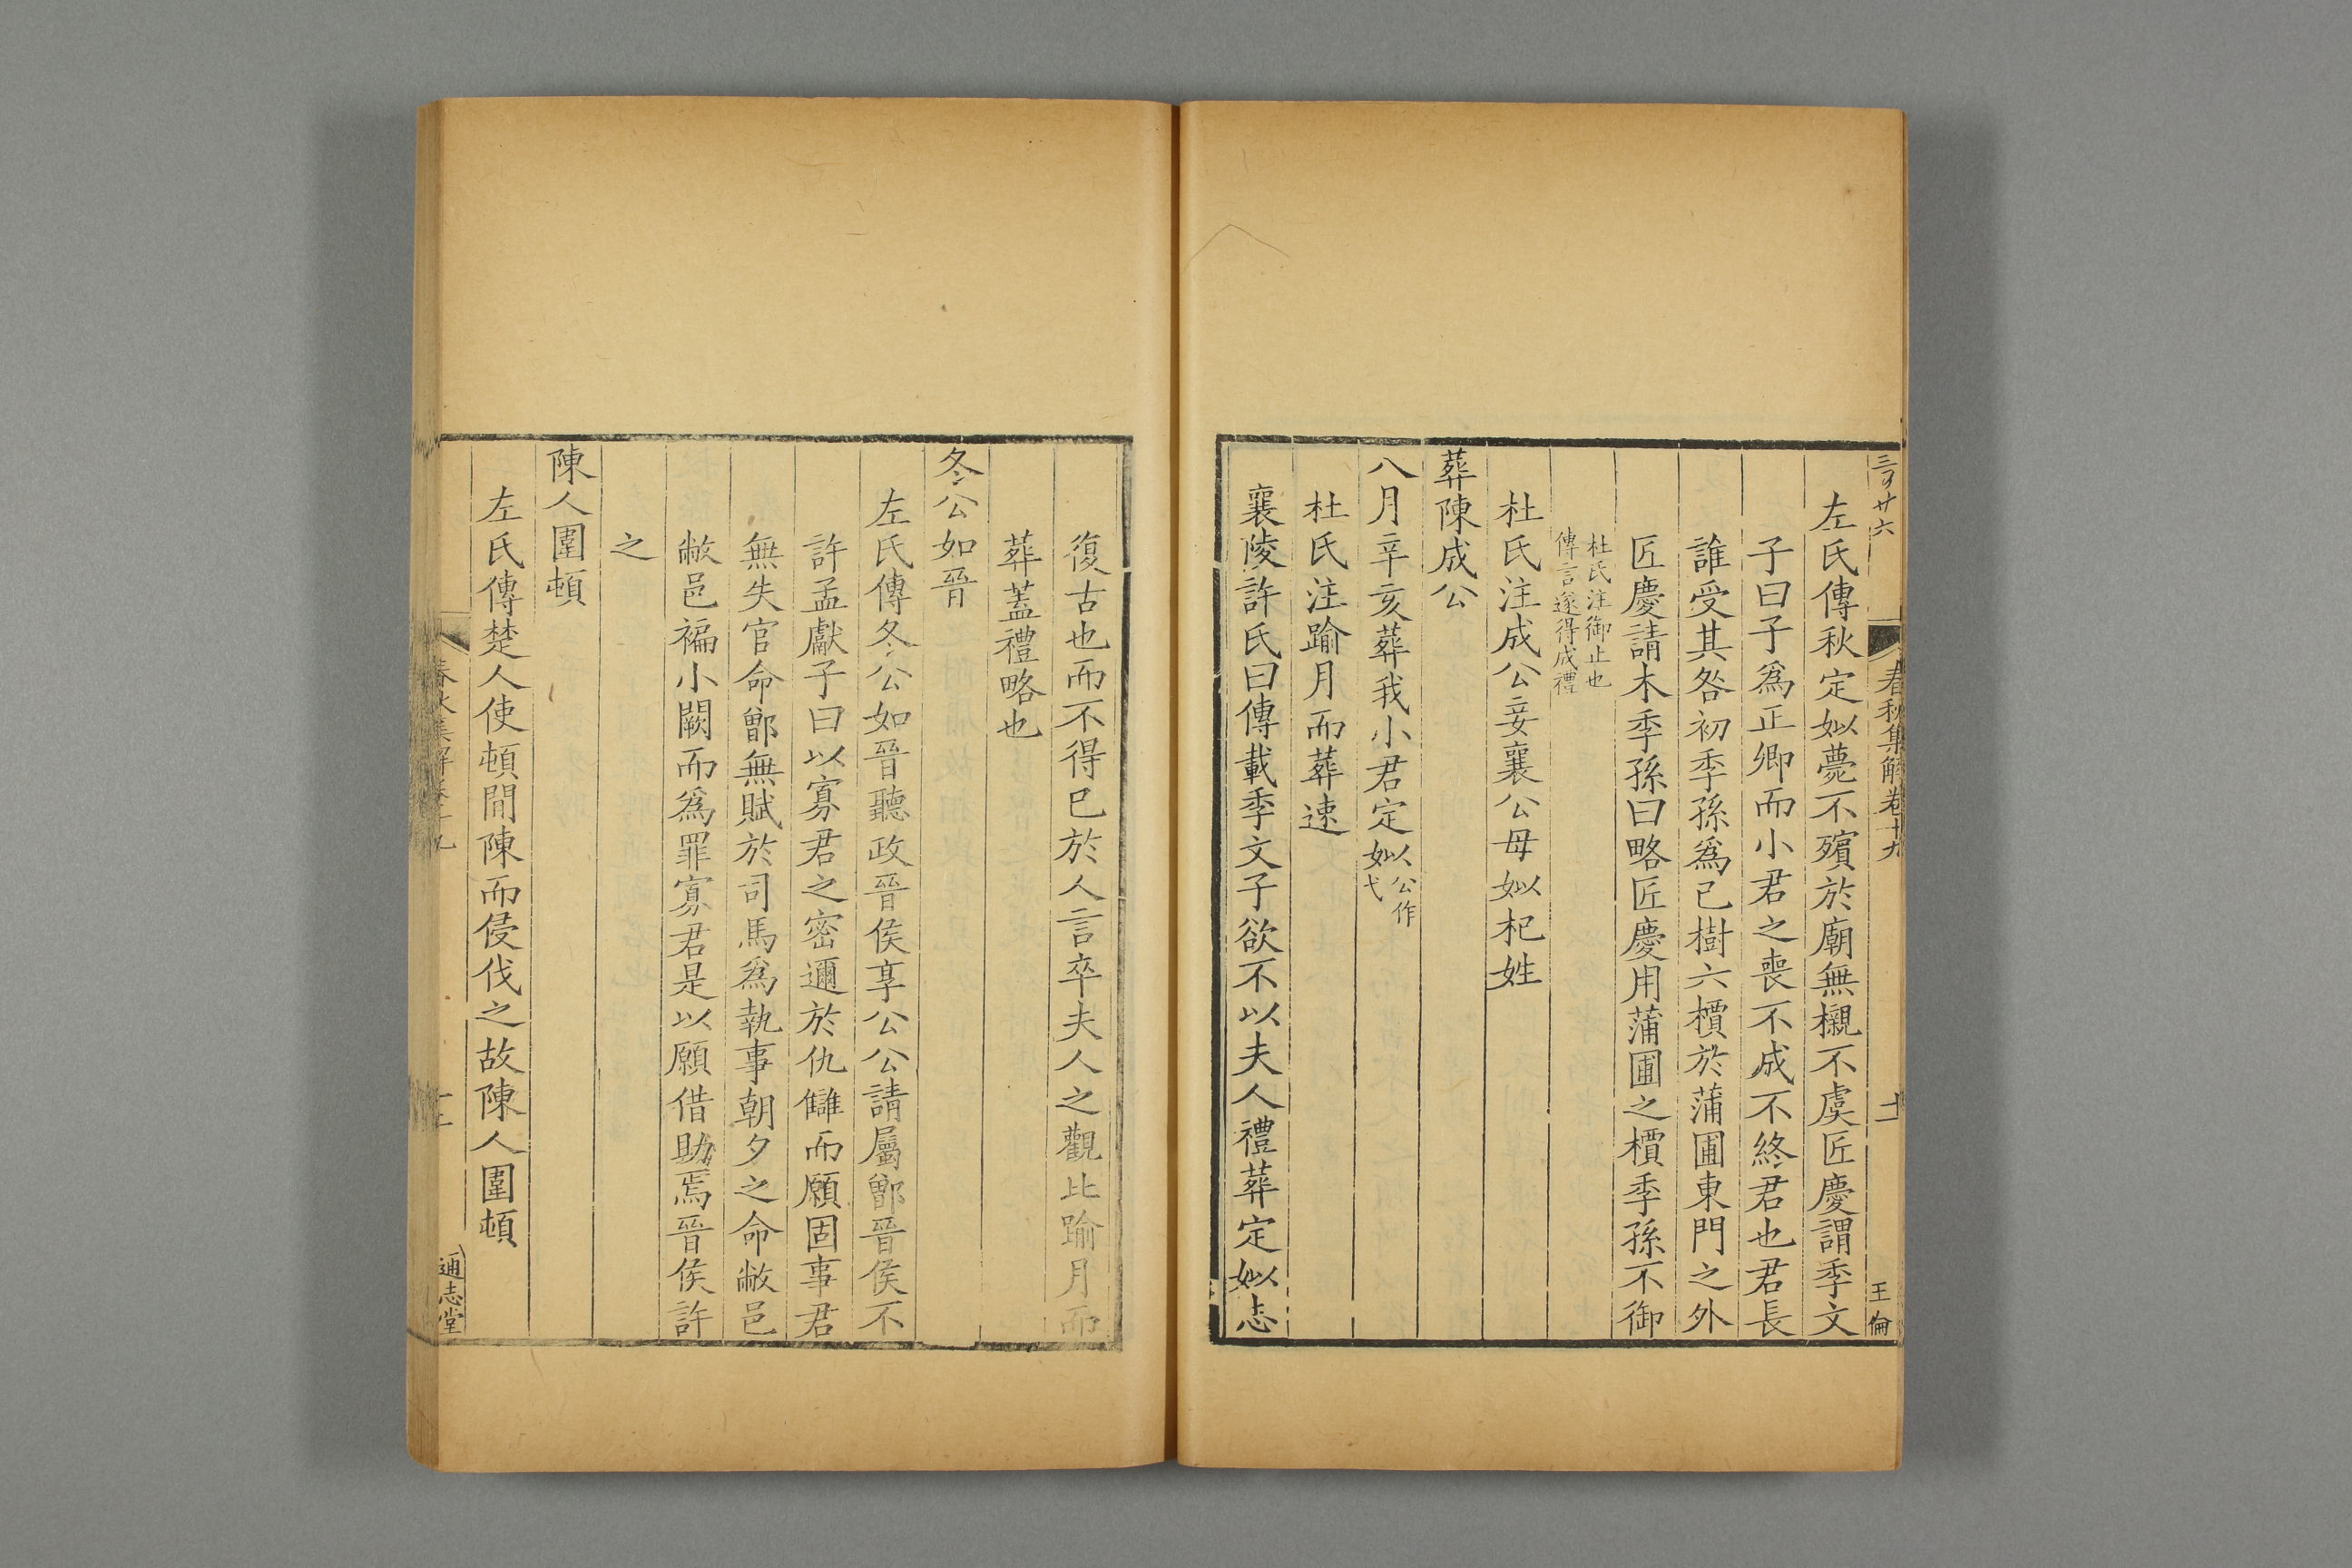 三百廿六
春秋集解卷十九
十一
王倫
左氏傳秋定姒薨不殯於廟無櫬不虞匠慶謂季文
子曰子爲正卿而小君之喪不成不終君也君長
誰受其咎初季孫爲己樹六檟於蒲圃東門之外
匠慶請木季孫曰略匠慶用蒲圃之檟季孫不御
杜氏注御止也
傳言遂得成禮
杜氏注成公妾襄公母姒杞姓
葬陳成公
八月辛亥葬我小君定姒公作弋
杜氏注踰月而葬速
襄陵許氏曰傳載季文子欲不以夫人禮葬定姒志
復古也而不得已於人言卒夫人之觀比踰月而
葬蓋禮略也
冬公如晉
左氏傳冬公如晉聽政晉侯享公公請屬鄫晉侯不
許孟獻子曰以寡君之密邇於仇讎而願固事君
無失官命鄫無賦於司馬爲執事朝夕之命敝邑
敝邑褊小闕而爲罪寡君是以願借助焉晉侯許
之
陳人圍頓
左氏傳楚人使頓間陳而侵伐之故陳人圍頓
春秋集解卷十九
通志堂